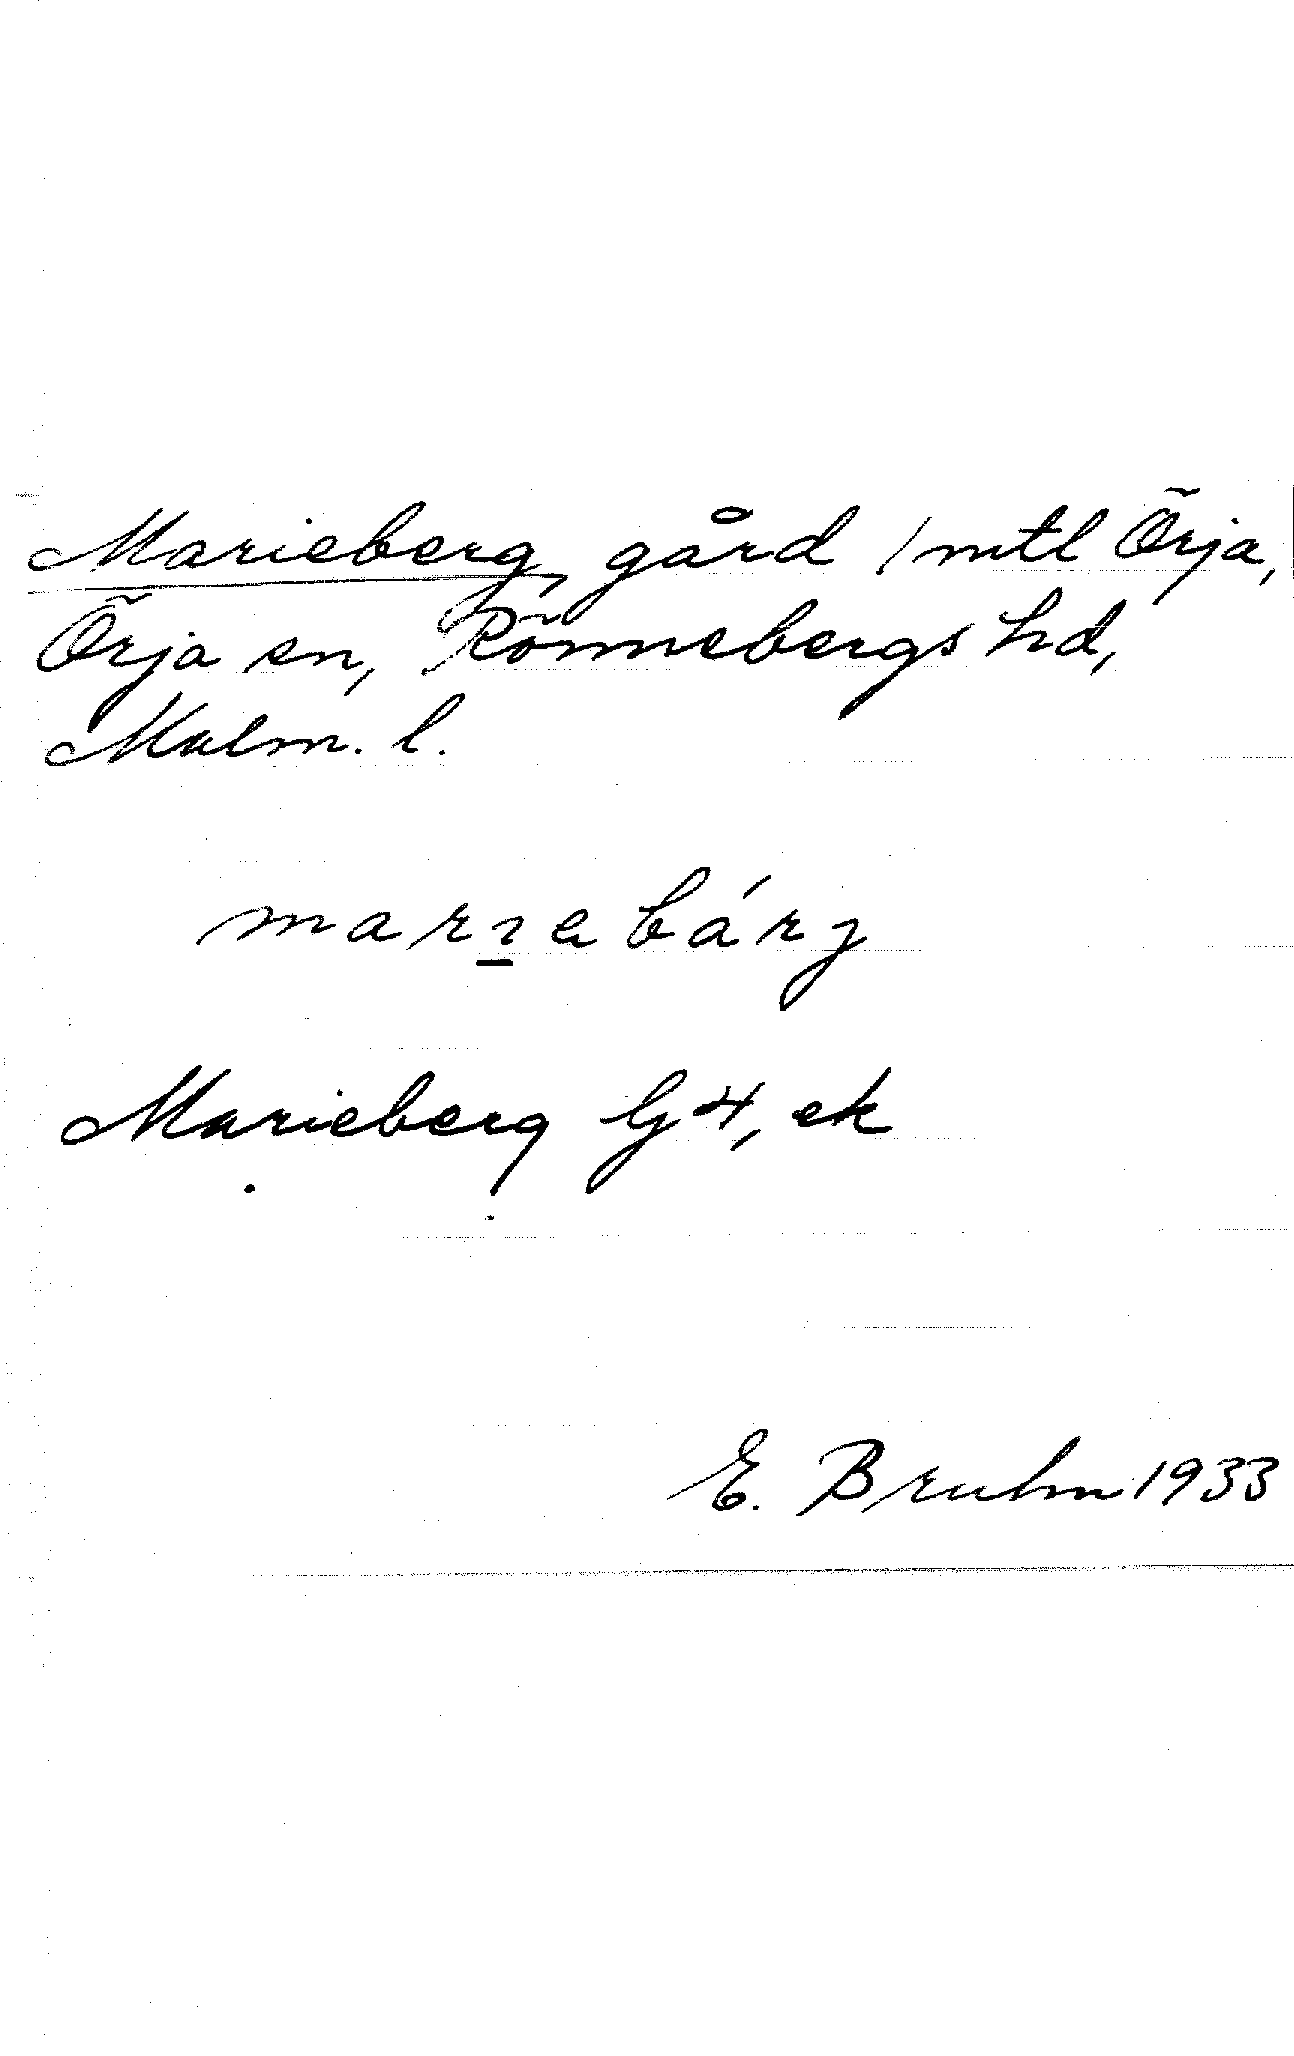 Marieberg, gård 1 mtl Örja,
Örja sn, Rönnebergs hd,
Malm. l.
marıebárg
Marieberg G4, ek
E. Bruhn 1933